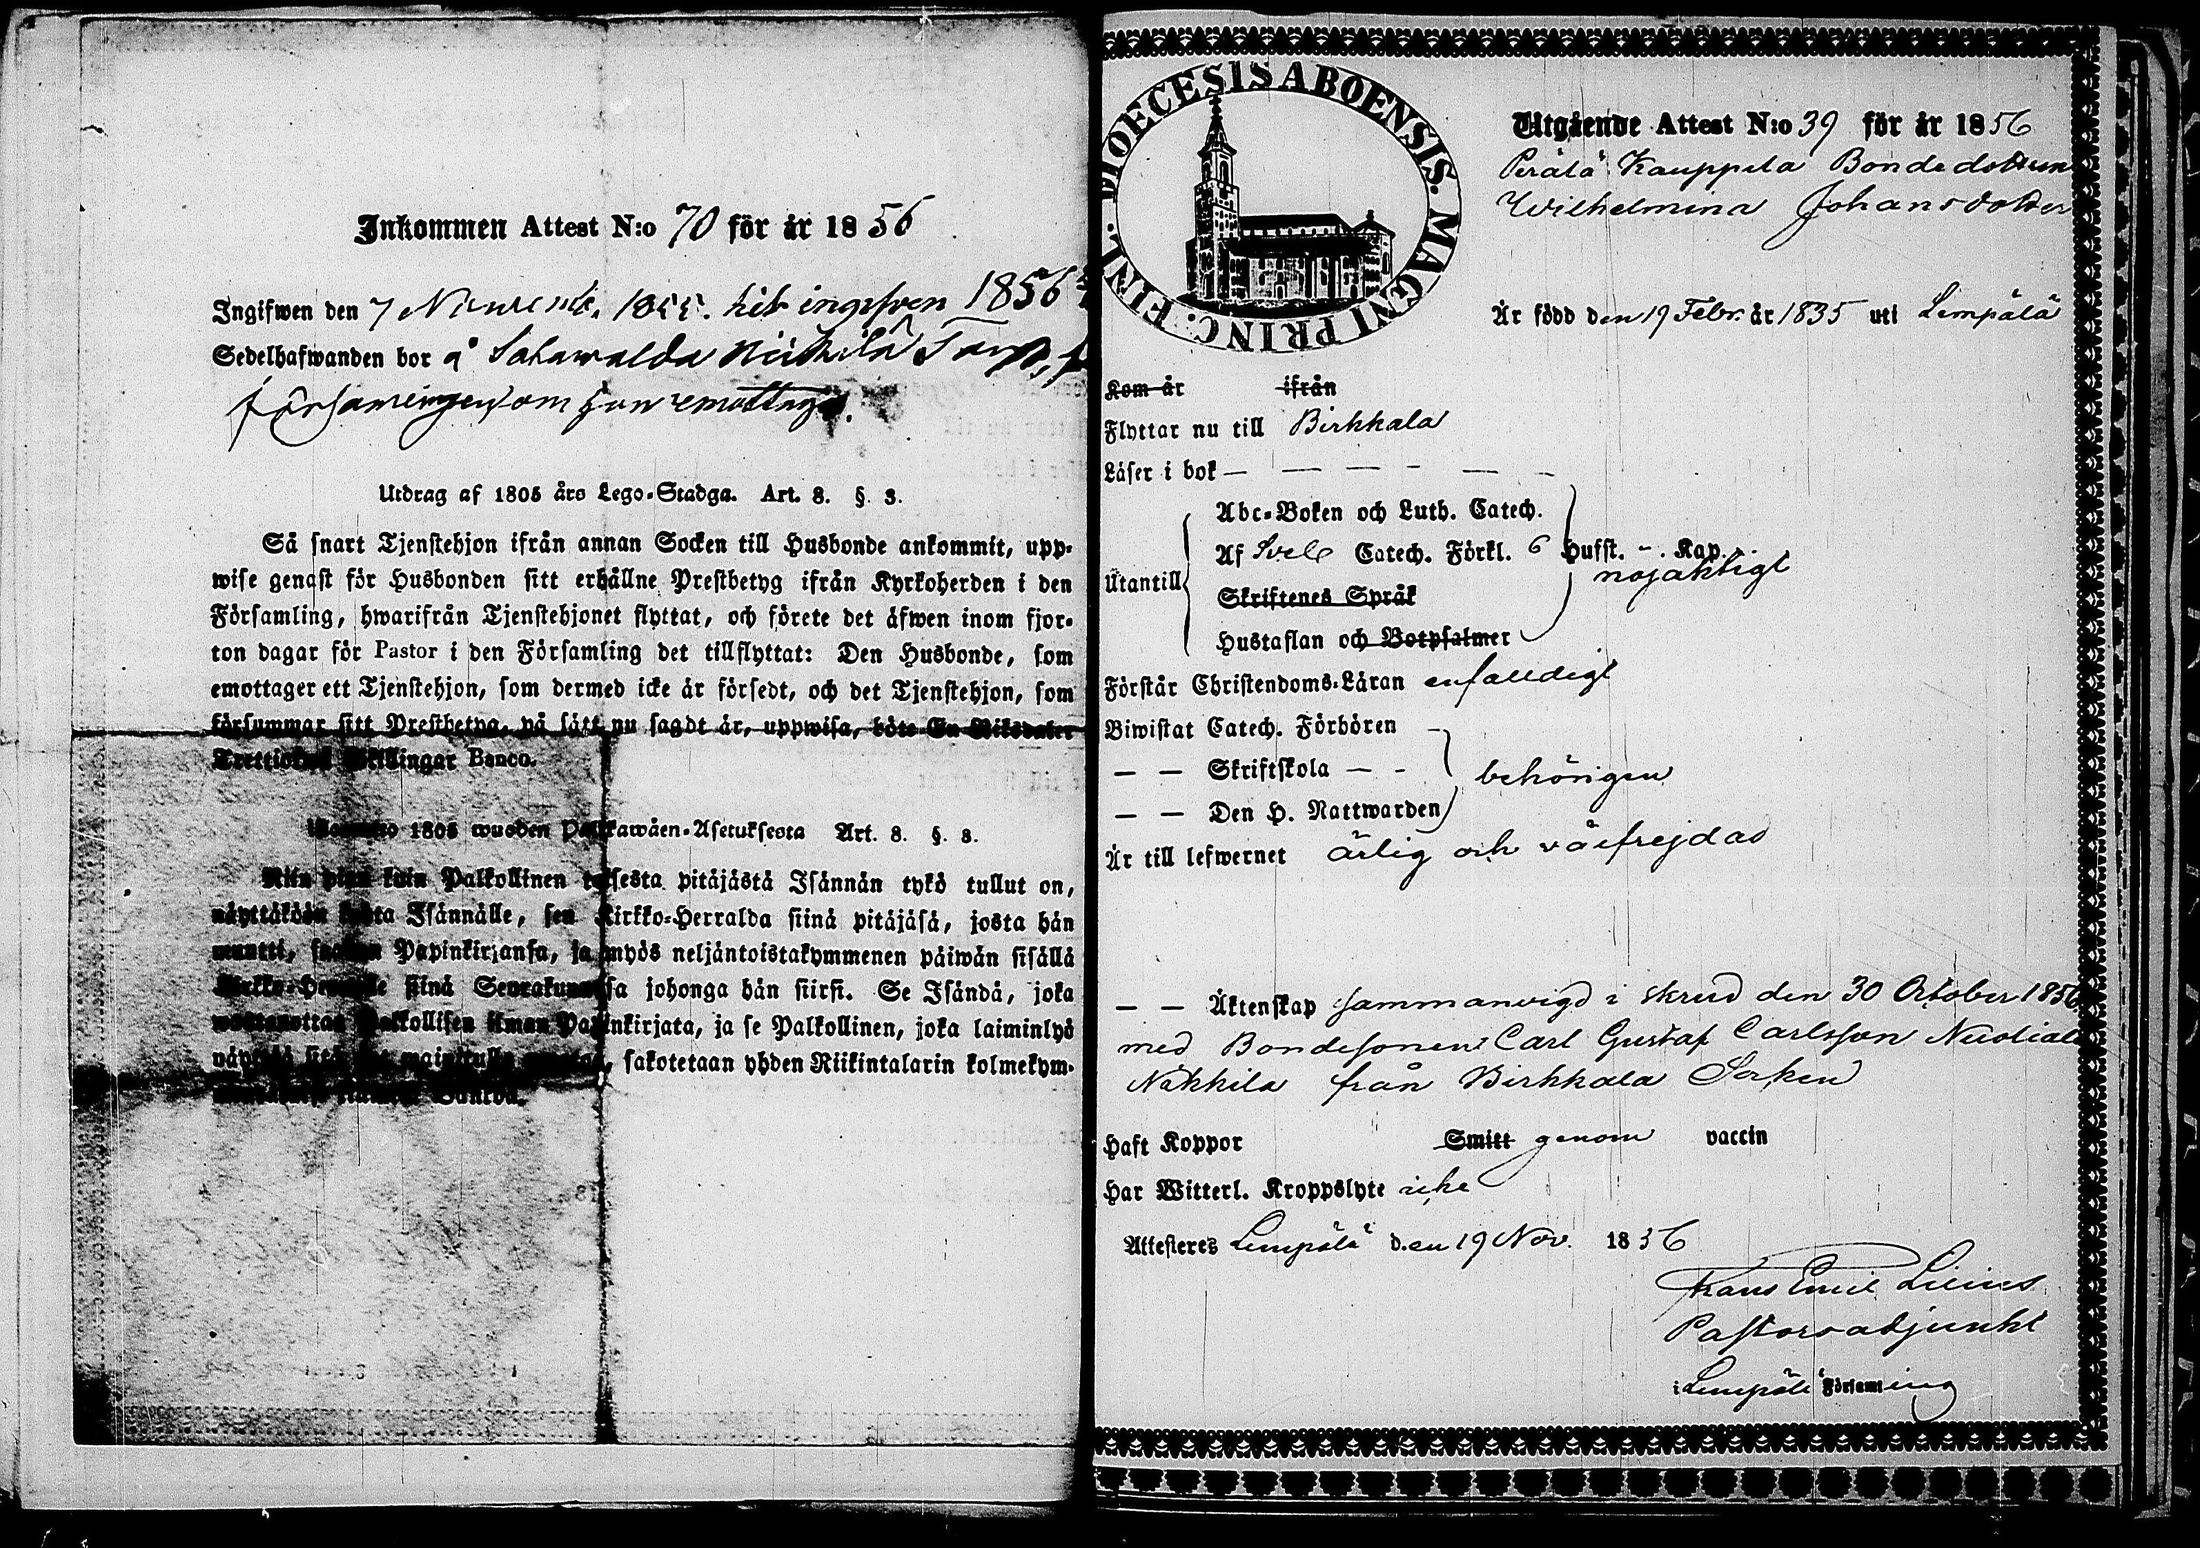 Inkommen Attest N:o 70 för år 1856
Ingifwen den 7 1855. hit ingifven 1856
Sedelhafwanden bor å Sahawalda
församlingen som hon emottages.
Utdrag af 1805 års Lego-Stadga. Art. 8. §. 3.
Så snart Tjenstehjon ifrån annan Socken till Husbonde ankommit, upp-
wise genast för Husbonden sitt erhållne Prestbetyg ifrån Kyrkoherden i den
Församling, hwarifrån Tjenstehjonet flyttat, och förete det äfwen inom fjor-
ton dagar för Pastor i den Församling det tillflyttat: Den Husbonde, som
emottager ett Tjenstehjon, som dermed icke är försedt, och det Tjenstehjon, som
försummar sitt Prestbetyg, på sätt nu sagdt är, uppwisa, böte En Riksdaler
Skillingar Banco.
1805 wuoden Palkawäen-Asetuksesta Art. 8. §. 3.
Niin pian kuin Palkollinen toisesta pitäjästä Isännän tykö tullut on,
näyttäköön Isännälle, sen Kirkko-Herralda siinä pitäjäsä, josta hän
muutti, Papinkirjansa, ja myös neljäntoistakymmenen päiwän sisällä
siinä Seurakunnassa johonga hän siirsi. Se Isändä, joka
Palkollisen ilman Papinkirjata, ja se Palkollinen, joka laiminlyö
sakotetaan yhden Riikintalarin kolmekym-
DIOECESIS ABOENSIS. MAGNI PRINC. FINL.
Utgående Attest N:o 39 för år 1856
Perälä Kauppila Bondedottren
Wilhelmina Johansdotter
Är född den 19 Febr. år 1835 uti Lempälä
Kom år ifrån
Flyttar nu till Birkkala
Läser i bok — — — - — —
Abc-Boken och Luth. Catech.
Af Sveb Catech. Förkl. 6 Hufst. - . Kap.
Utantill nöjaktigt
Skriftenes Språk
Hustaflan och Botpsalmer
Förstår Christendoms-Läran enfaldigt
Biwistat Catech. Förhören —
— — Skriftskola — - behörigen
— — Den H. Nattwarden
Är till lefwernet ärlig och välfrejdad
— — Äktenskap sammanvigd i skrud den 30 October 1856
med Bondesonen Carl Gustaf Carlsson Nuoliala
Nikkilä från Birkkala Socken
Haft Koppor Smitt genom vaccin
Har Witterl. Kroppslyte icke
Attesteres Lempälä den 19 Nov. 1856
Frans Emil Lilius
Pastorsadjunkt
i Lempälä Församling